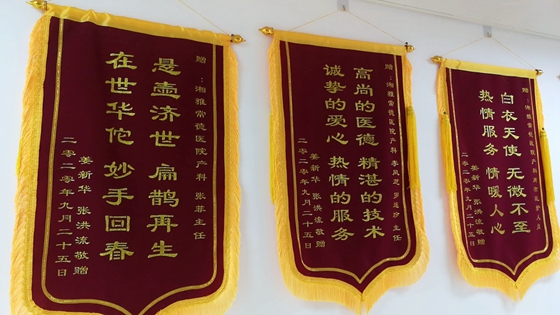 赠：湘雅常德医院产科 张菲主任
悬壶济世 扁鹊再生
在世华佗 妙手回春
姜新华 张洪流敬赠
二零二零年九月二十五日
赠：湘雅常德医院产科 主任
高尚的医德 精湛的技术
诚挚的爱心 热情的服务
姜新华 张洪流敬赠
二零二零年九月二十五日
赠：湘雅常德医院产科
白衣天使 无微不至
热情服务 情暖人心
姜新华 张洪流敬赠
二零二零年九月二十五日